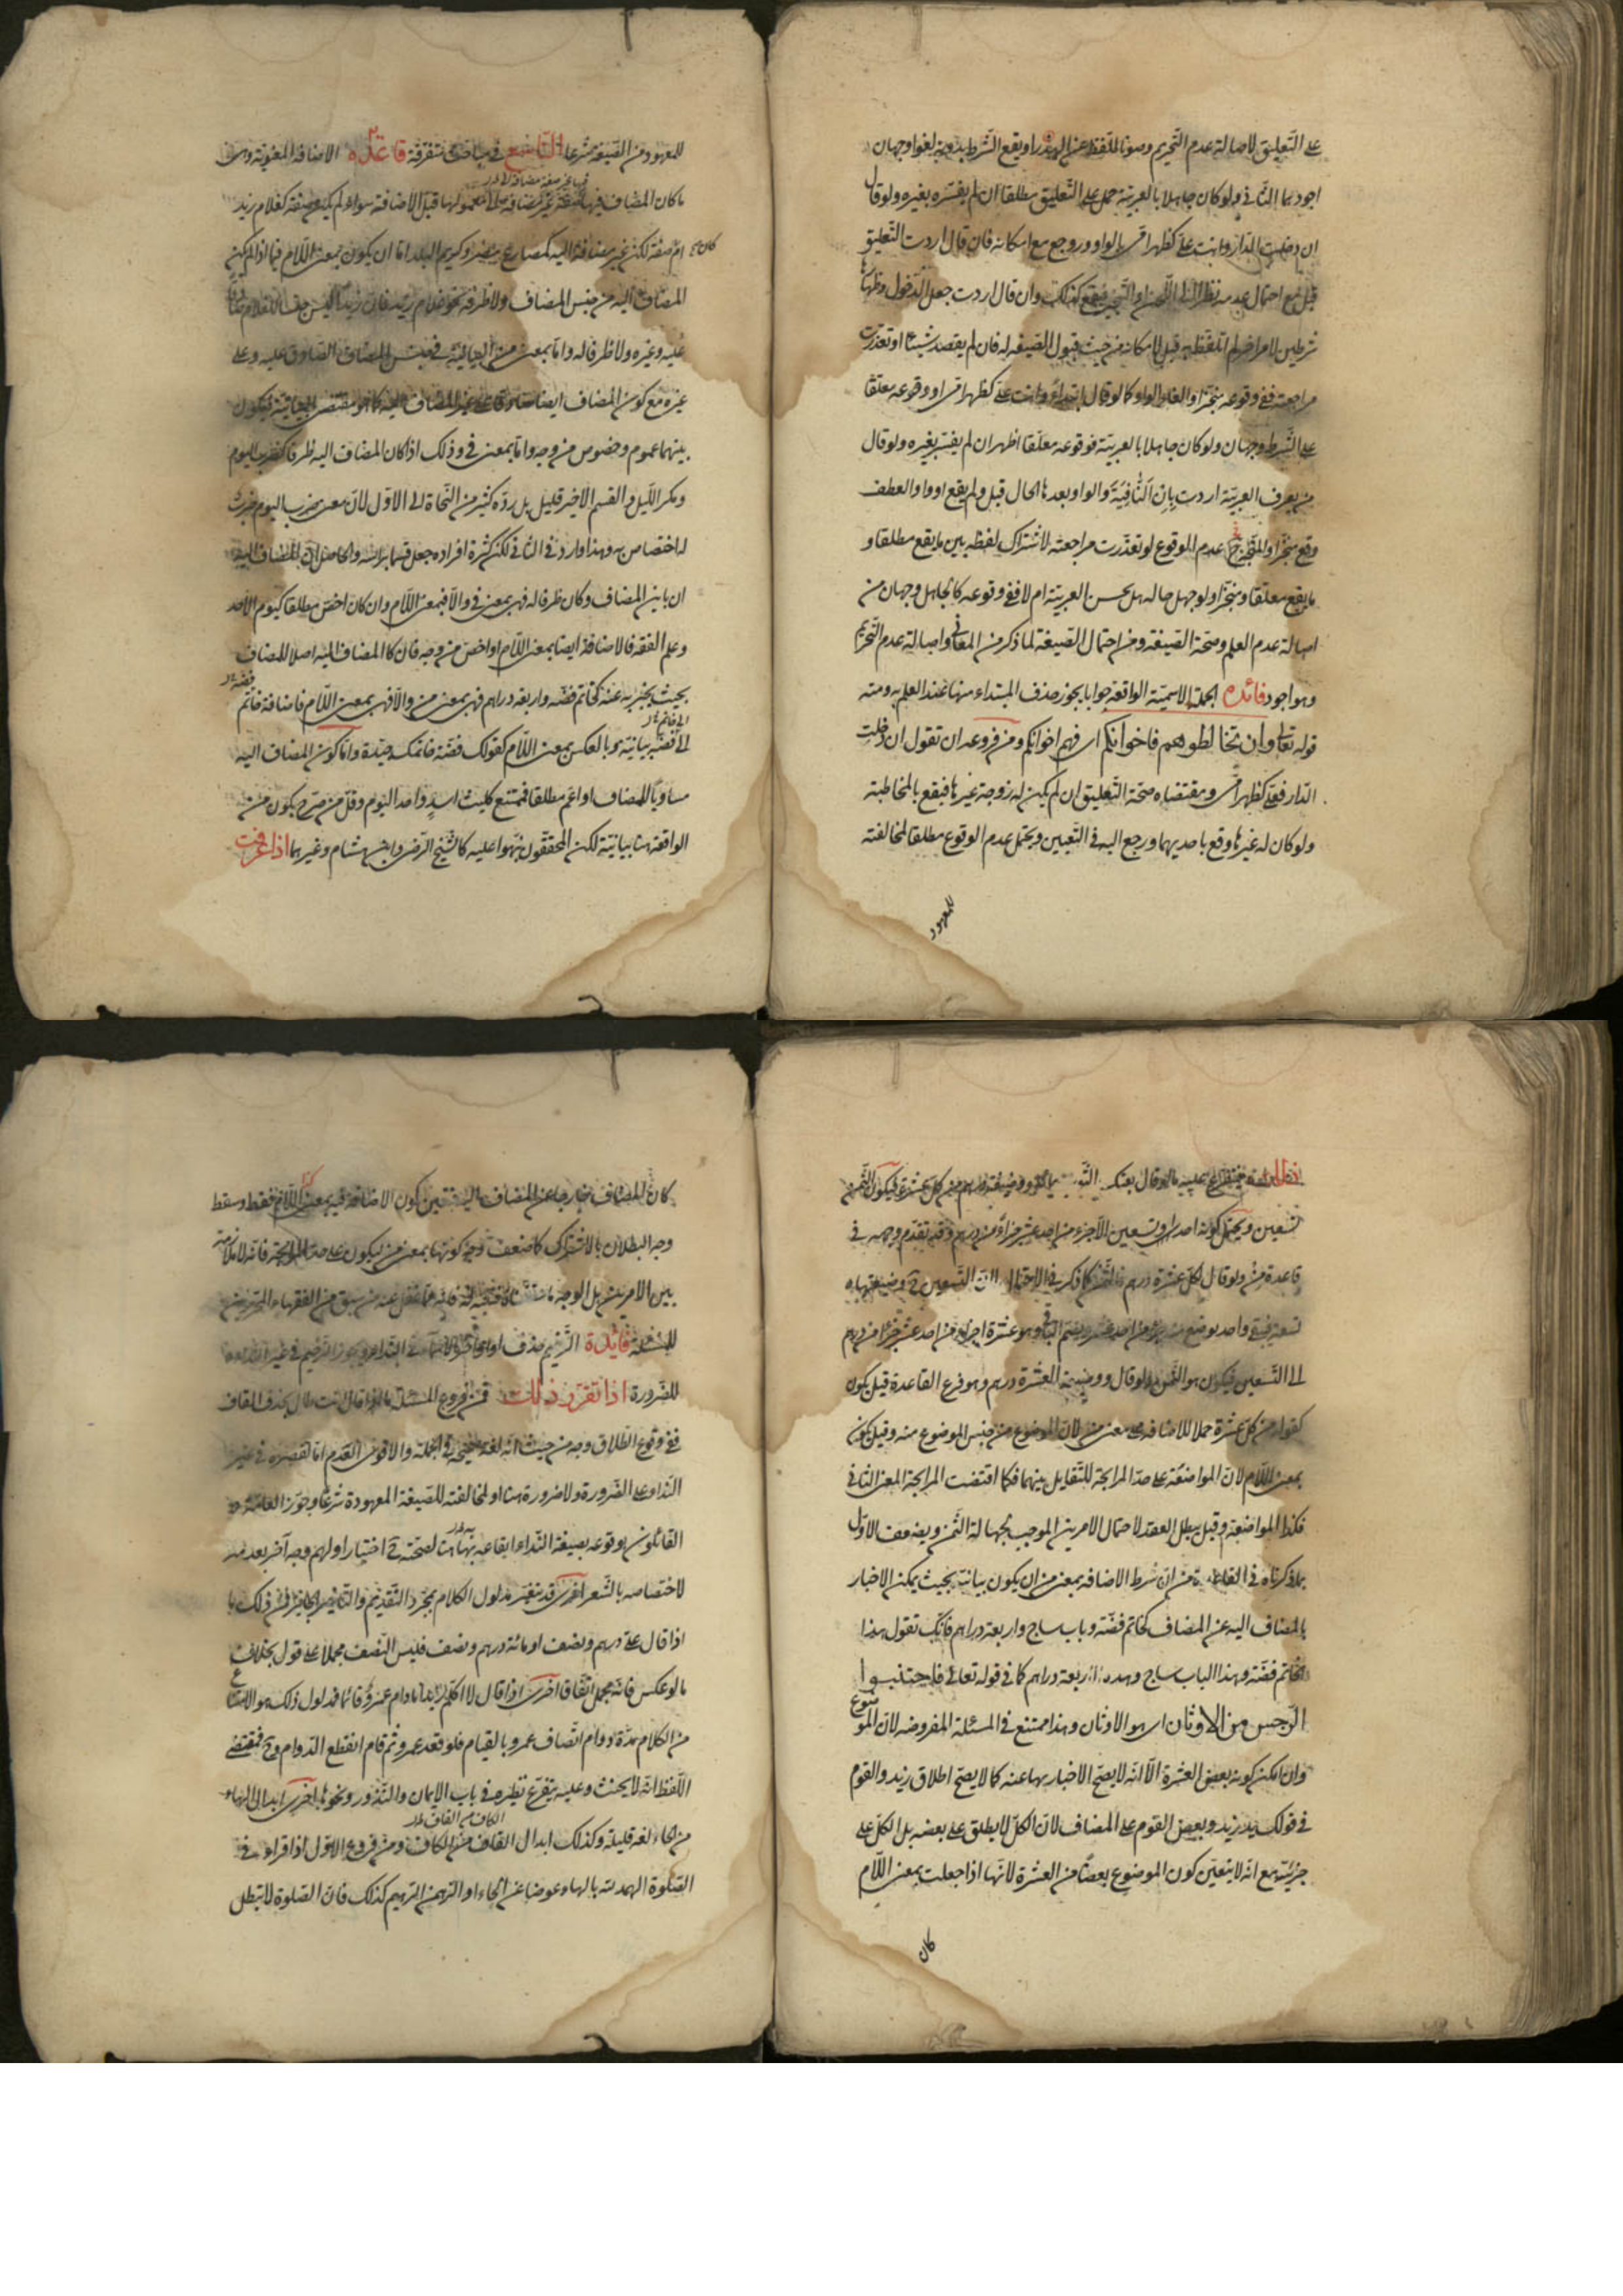 على التعليق لاصالة عدم التحريم وصونا للفظ عن الهذر او يقع الشرط بدونه لغوا وجهان
اجودهما الثاني ولو كان جاهلا بالعربية حمل على التعليق مطلقا ان لم يفسره بغيره ولو قال
ان دخلت الدار وانت علي كظهر امي بالواو ورجع مع امكانه فان قال اردت التعليق
قبل مع احتمال عدمه نظرا الى وان قال اردت جعل الدخول وظهارها
شرطين لامر اخر لم اتلفظ به قبل لامكانه من حيث قبول الصيغة له فان لم يقصد شيئا او تعذرت
مراجعته ففي وقوعه منجزا والغاء الواو كما لو قال ابتداء وانت علي كظهر امي او وقوعه معلقا
على الشرط وجهان ولو كان جاهلا بالعربية فوقوعه معلقا اظهر ان لم يفسر بغيره ولو قال
من يعرف العربية اردت بان النافية والواو بعدها الحال قبل ولم يقع او واو العطف
وقع منجزا والمتجه ح عدم الوقوع لو تعذرت مراجعته لاشتراك لفظه بين ما يقع مطلقا و
ما يقع معلقا ومنجزا ولو جهل حاله هل يحسن العربية ام لا ففي وقوعه كالجاهل وجهان من
اصالة عدم العلم وصحة الصيغة ومن احتمال الصيغة لما ذكر من المعاني واصالة عدم التحريم
وهو اجود فائدة الجملة الاسمية الواقعة جوابا يجوز حذف المبتداء منها عند العلم به ومنه
قوله تعالى وان تخالطوهم فاخوانكم اي فهم اخوانكم ومن فروعه ان تقول ان دخلت
الدار فعلي كظهر امي ومقتضاه صحة التعليق ان لم يكن له زوجة غيرها فيقع بالمخاطبة
ولو كان له غيرها وقع باحديهما ورجع اليه في التعيين ويحتمل عدم الوقوع مطلقا لمخالفته
للمعهود
للمعهود من الصيغة شرعا التاسع في مباحث متفرقة قاعدة الاضافة المعنوية وهي
ما كان المضاف فيها صفة غير مضافة الى معمولها قبل الاضافة سواء لم يكن صفة كغلام زيد
ام صفة لكن غير مضافة اليه كمصارع مصر وكريم البلد اما ان يكون بمعنى اللام فيما اذا لم يكن
المضاف اليه من جنس المضاف ولا ظرفه نحو غلام زيد فان زيدا ليس جنسا للغلام صادقا
عليه وغيره ولا ظرفا له واما بمعنى من البيانية في جنس المضاف الصادق عليه وعلى
غيره مع كون المضاف ايضا صادقا على غير المضاف اليه كما هو مقتضى البيانية فيكون
بينهما عموم وخصوص من وجه واما بمعنى في وذلك اذا كان المضاف اليه ظرفا كضرب اليوم
ومكر الليل والقسم الاخير قليل بل رده كثير من النحاة الى الاول لان معنى ضرب اليوم ضرب
له اختصاص به وهذا وارد في الثاني لكن كثرة افراده جعل قسما براسه والحاصل ان المضاف اليه
ان باين المضاف وكان ظرفا له فهي بمعنى في والا فبمعنى اللام وان كان اخص مطلقا كيوم الاحد
وعلم الفقه فالاضافة ايضا بمعنى اللام او اخص من وجه فان كان المضاف اليه اصلا للمضاف
بحيث يخبر به عنه كخاتم فضة واربعة دراهم فهي بمعنى من والا فهي بمعنى اللام فاضافة خاتم
الى فضة بيانية وبالعكس بمعنى اللام كقولك فضة خاتمك جيدة واما كون المضاف اليه
مساويا للمضاف او اعم مطلقا فممتنع كليث اسد واحد اليوم وقل من صرح بكون من
الواقعة هنا بيانية لكن المحققون نبهوا عليه كالشيخ الرضي وابن هشام وغيرهما اذا عرفت
ذلك فيتفرع عليه ما لو قال بعتك ووضيعة درهم من كل عشرة فيكون الثمن
تسعين ويحتمل كونه احدا وتسعين الا جزء من احد عشر جزاء من درهم وقد تقدم وجهه في
قاعدة من ولو قال لكل عشرة درهم فالثمن كما ذكر في الاحتمال التسعين ح وضيعتها
تسعة فيبقى واحد يوضع منه جزء من احد عشر يضم الباقي وهو عشرة اجزاء من احد عشر جزءا من درهم
الى التسعين فيكون هو الثمن ولو قال ووضيعة العشرة درهم وهو فرع القاعدة قيل يكون
كقوله من كل عشرة حملا للاضافة على معنى من لان الموضوع من جنس الموضوع منه وقيل يكون
بمعنى اللام لان المواضعة على حد المرابحة للتقابل بينهما فكما اقتضت المرابحة المعنى الثاني
فكذا المواضعة وقيل يبطل العقد لاحتمال الامرين الموجب لجهالة الثمن ويضعف الاول
بما ذكرناه في القاعدة من ان شرط الاضافة بمعنى من ان يكون بيانية بحيث يمكن الاخبار
بالمضاف اليه عن المضاف كخاتم فضة وباب ساج واربعة دراهم فانك تقول هذا
الخاتم فضة وهذا الباب ساج وهذه اربعة دراهم كما في قوله تعالى فاجتنبوا
الرجس من الاوثان اي هو الاوثان وهذا ممتنع في المسئلة المفروضة لان الموضوع
وان امكن كونه بعض العشرة الا انه لا يصح الاخبار بها عنه كما لا يصح اطلاق زيد والقوم
في قولك يد زيد وبعض القوم على المضاف لان الكل لا يطلق على بعضه بل الكل على
جزئيته مع انه لا يتعين كون الموضوع بعضا من العشرة لانها اذا جعلت بمعنى اللام
كان
كان المضاف خارجا عن المضاف اليه فيتعين كون الاضافة فيه بمعنى اللام فقط وسقط
وجه البطلان بالاشتراك كما ضعف وجه كونها بمعنى من ليكون على حد المرابحة فانه لا ملازمة
بين الامرين بل الوجه فانه مما نقل عنه من سبق من الفقهاء
للمسئلة فائدة الترخيم حذف اواخر الاسماء في النداء ويجوز الترخيم في غير النداء
للضرورة اذا تقرر ذلك فمن فروع المسئلة ما اذا قال انت طال بحذف القاف
ففي وقوع الطلاق وجه من حيث انه لغة صحيحة في الجملة والاقوى العدم اما لقصره في غير
النداء على الضرورة ولا ضرورة هنا او لمخالفته للصيغة المعهودة شرعا وجوز العامة
القائلون بوقوعه بصيغة النداء ايقاعه به هنا لصحته ح اختيارا ولهم وجه آخر بعدمه
لاختصاصه بالشعر اخرى قد يتغير مدلول الكلام بمجرد التقديم والتاخير الجائز فمن ذلك ما
اذا قال علي درهم ونصف او مائة درهم ونصف فليس النصف مجملا على قول بخلاف
ما لو عكس فانه مجمل اتفاقا اخرى اذا قال لا اكلم زيدا ما دام عمرو قائما فمدلول ذلك هو الامتناع
من الكلام مدة دوام اتصاف عمرو بالقيام فلو قعد عمرو ثم قام انقطع الدوام وح فمقتضى
اللفظ انه لا يحنث وعليه يتفرع نظيره في باب الايمان والنذور ونحوها اخرى ابدال الهاء
من الحاء لغة قليلة وكذلك ابدال القاف من الكاف ومن فروع الاول اذا قراء في
الصلوة الهمد لله بالهاء عوضا عن الحاء او الرهمن الرهيم كذلك فان الصلوة لا تبطل